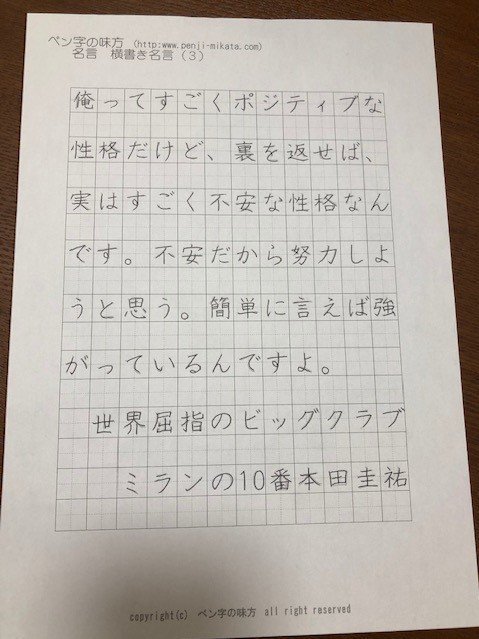 ペン字の味方 (http:www.penji-mikata.com)
名言 横書き名言(3)
俺ってすごくポジティブな
性格だけど、裏を返せば、
実はすごく不安な性格なん
です。不安だから努力しよ
うと思う。簡単に言えば強
がっているんですよ。
世界屈指のビッグクラブ
ミランの10番本田圭祐
copyright(c) ペン字の味方 all right reserved